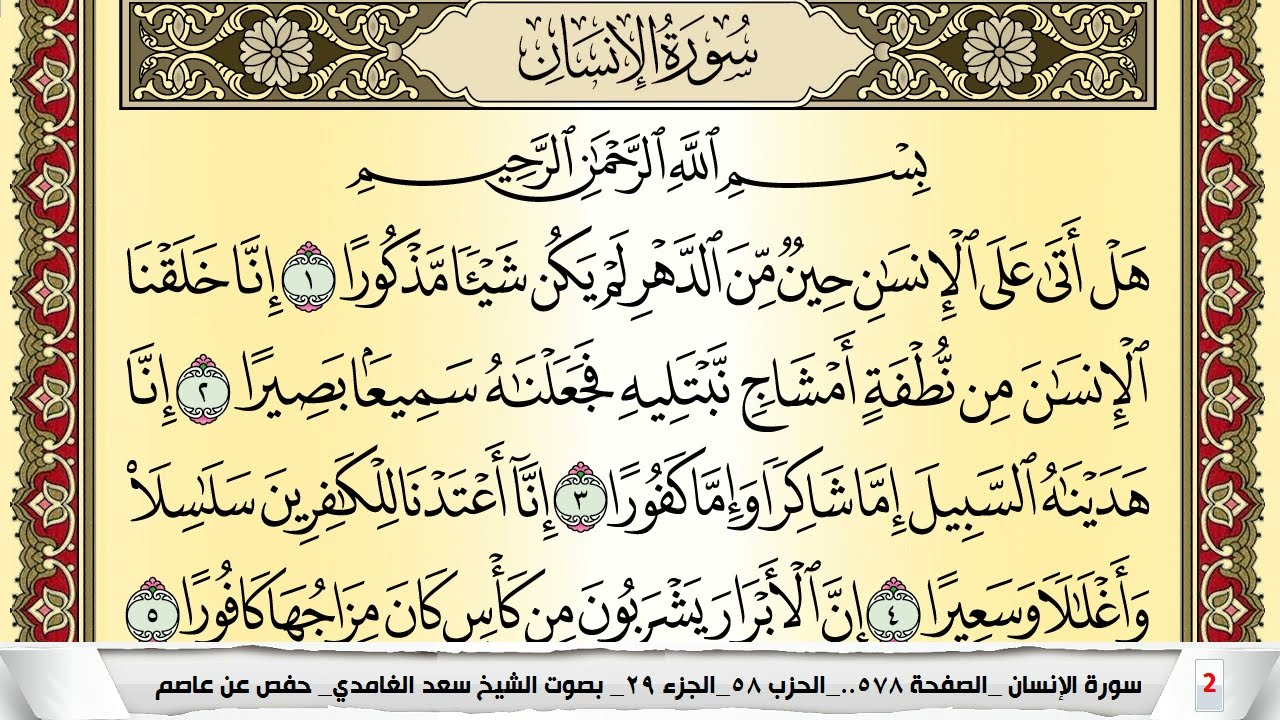 سُورَةُ الإِنسَانِ
بِسْمِ ٱللَّهِ ٱلرَّحْمَٰنِ ٱلرَّحِيمِ
هَلْ أَتَىٰ عَلَى ٱلْإِنسَٰنِ حِينٌ مِّنَ ٱلدَّهْرِ لَمْ يَكُن شَيْـًٔا مَّذْكُورًا ١ إِنَّا خَلَقْنَا
ٱلْإِنسَٰنَ مِن نُّطْفَةٍ أَمْشَاجٍ نَّبْتَلِيهِ فَجَعَلْنَٰهُ سَمِيعًۢا بَصِيرًا ٢ إِنَّا
هَدَيْنَٰهُ ٱلسَّبِيلَ إِمَّا شَاكِرًا وَإِمَّا كَفُورًا ٣ إِنَّآ أَعْتَدْنَا لِلْكَٰفِرِينَ سَلَٰسِلَا۟
وَأَغْلَٰلًا وَسَعِيرًا ٤ إِنَّ ٱلْأَبْرَارَ يَشْرَبُونَ مِن كَأْسٍ كَانَ مِزَاجُهَا كَافُورًا ٥
سورة الإنسان _الصفحة ٥٧٨.._الحزب ٥٨_الجزء ٢٩_ بصوت الشيخ سعد الغامدي_ حفص عن عاصم
2